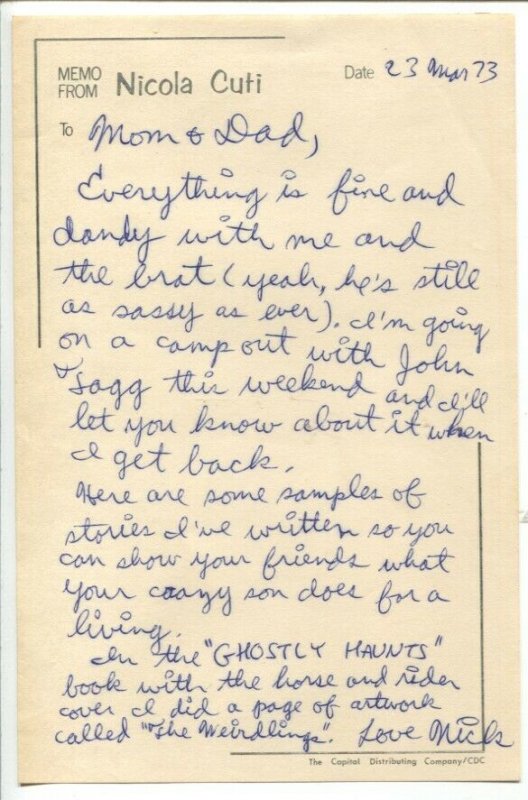 MEMO
FROM Nicola Cuti
Date 23 Mar 73
To Mom & Dad,
Everything is fine and
dandy with me and
the brat (yeah, he's still
as sassy as ever). I'm going
on a camp out with John
Tagg this weekend and I'll
let you know about it when
I get back.
Here are some samples of
stories I've written so you
can show your friends what
your crazy son does for a
living.
In the "GHOSTLY HAUNTS"
book with the horse and rider
cover I did a page of artwork
called "The Weirdlings". Love Nick
The Capital Distributing Company/CDC